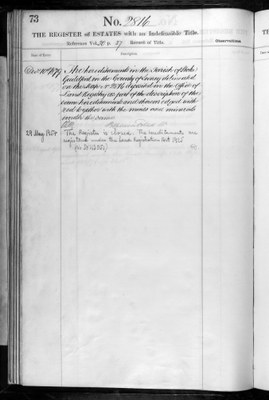 73
No. 2816
THE REGISTER of ESTATES with an Indefeasible Title.
Reference Vol. p. 27. Record of Title.
Date of Entry.
Description.
Observations.
The Hereditaments in the Parish of Stoke
Guildford in the County of Surrey delineated
on the Map No 2816 deposited in the Office of
Land Registry as part of the description of the
same Hereditaments and thereon edged with
red together with the mines and minerals
under the same
29 May 1927
This Register is closed. The hereditaments are
registered under the Land Registration Act 1925